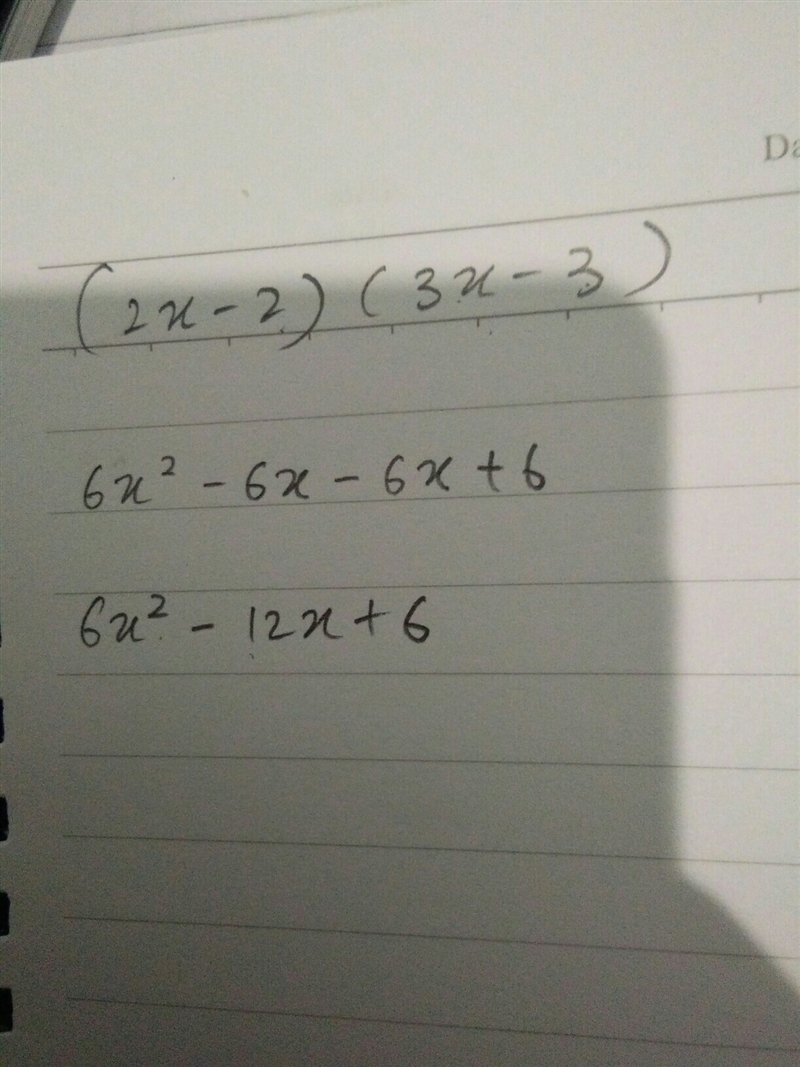 Da
(2x-2)(3x-3)
6x² - 6x - 6x + 6
6x² - 12x + 6